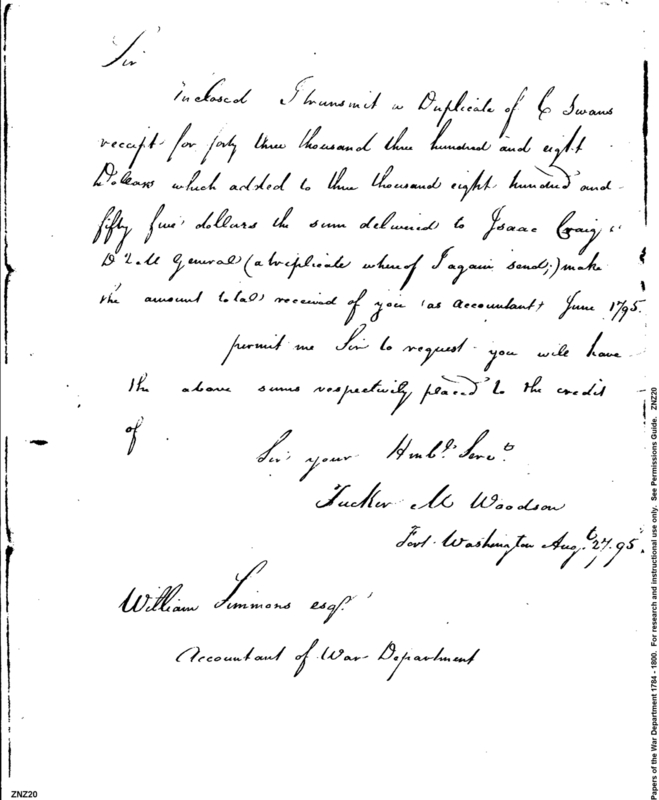 Sir
Inclosed I transmit a Duplicate of C Swans
receipt for forty three thousand three hundred and eight
Dollars which added to three thousand eight hundred and
fifty five dollars the sum delivered to Isaac Craig
D Q M General (a triplicate whereof I again send;) make
the amount total received of you (as accountant) June 1795.
permit me Sir to request you will have
the above sums respectively placed to the credit
of
Sir your Hmble. Servt.
Tucker M Woodson
Fort Washington Augt. 27. 95.
William Simmons esqr.
Accountant of War Department
ZNZ20
Papers of the War Department 1784 - 1800. For research and instructional use only. See Permissions Guide. ZNZ20